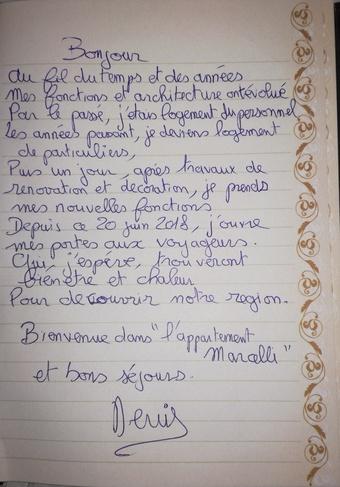 Bonjour
Au fil du temps et des années
Mes fonctions et architecture ont évolué
Par le passé, j'étais logement du personnel
Les années passant, je deviens logement
de particuliers,
Puis un jour, après travaux de
renovation et décoration, je prends
mes nouvelles fonctions
Depuis ce 20 juin 2018, j'ouvre
mes portes aux voyageurs.
Qui, j'espère, trouveront
bien être et chaleur
Pour decouvrir notre region.
Bienvenue dans "l'appartement
Marcelli"
et bons séjours.
Denis